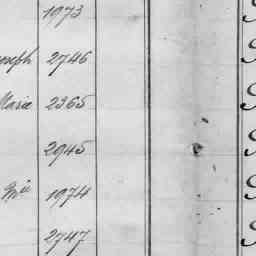 1973
oseph 2746
Marie 2365
2945
1974
2747